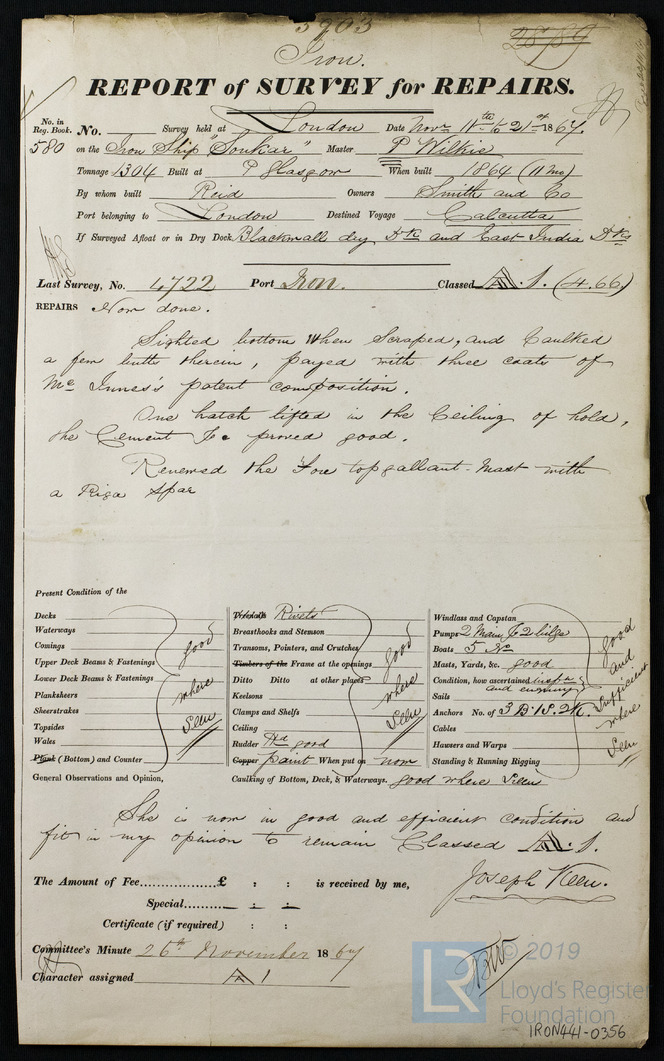 5903
Iron.
REPORT of SURVEY for REPAIRS.
No. in Reg. Book.
580
No. Survey held at London Date Novr 11th to 21st 1867.
on the Iron Ship "Sonkar" Master P Wilkie
Tonnage 1304 Built at P Glasgow When built 1864 (11 mo)
By whom built Reid Owners Smith and Co
Port belonging to London Destined Voyage Calcutta
If Surveyed Afloat or in Dry Dock Blackwall dry Dk and East India Dks
Last Survey, No. 4722 Port Iron. Classed A 1. (4.66)
REPAIRS Now done.
Sighted bottom when scraped, and Caulked
a few butts therein, payed with three coats of
Mc Inness's patent composition.
One hatch lifted in the Ceiling of hold,
the Cement &c proved good.
Renewed the Fore topgallant-Mast with
a Riga Spar
Present Condition of the
Decks
Waterways
Comings
Upper Deck Beams & Fastenings
Lower Deck Beams & Fastenings
Planksheers
Sheerstrakes
Topsides
Wales
Plank (Bottom) and Counter
good where seen
Treenails Rivets
Breasthooks and Stemson
Transoms, Pointers, and Crutches
Timbers of the Frame at the openings
Ditto Ditto at other places
Keelsons
Clamps and Shelfs
Ceiling
Rudder Hd good
Copper paint When put on now
good where seen
Windlass and Capstan
Pumps 2 Main & 2 bilge
Boats 5 No
Masts, Yards, &c. good
Condition, how ascertained inspn and enquiry
Sails
Anchors No. of 3 B. 1 S. 2 K.
Cables
Hawsers and Warps
Standing & Running Rigging
good and sufficient where seen
General Observations and Opinion, Caulking of Bottom, Deck, & Waterways. good where seen
She is now in good and efficient condition and
fit in my opinion to remain Classed A 1.
The Amount of Fee...............£ : : is received by me,
Joseph Keen.
Special............ : :
Certificate (if required) : :
Committee's Minute 26th November 1867
Character assigned A 1
© 2019
LR
Lloyd's Register
Foundation
IRON441-0356